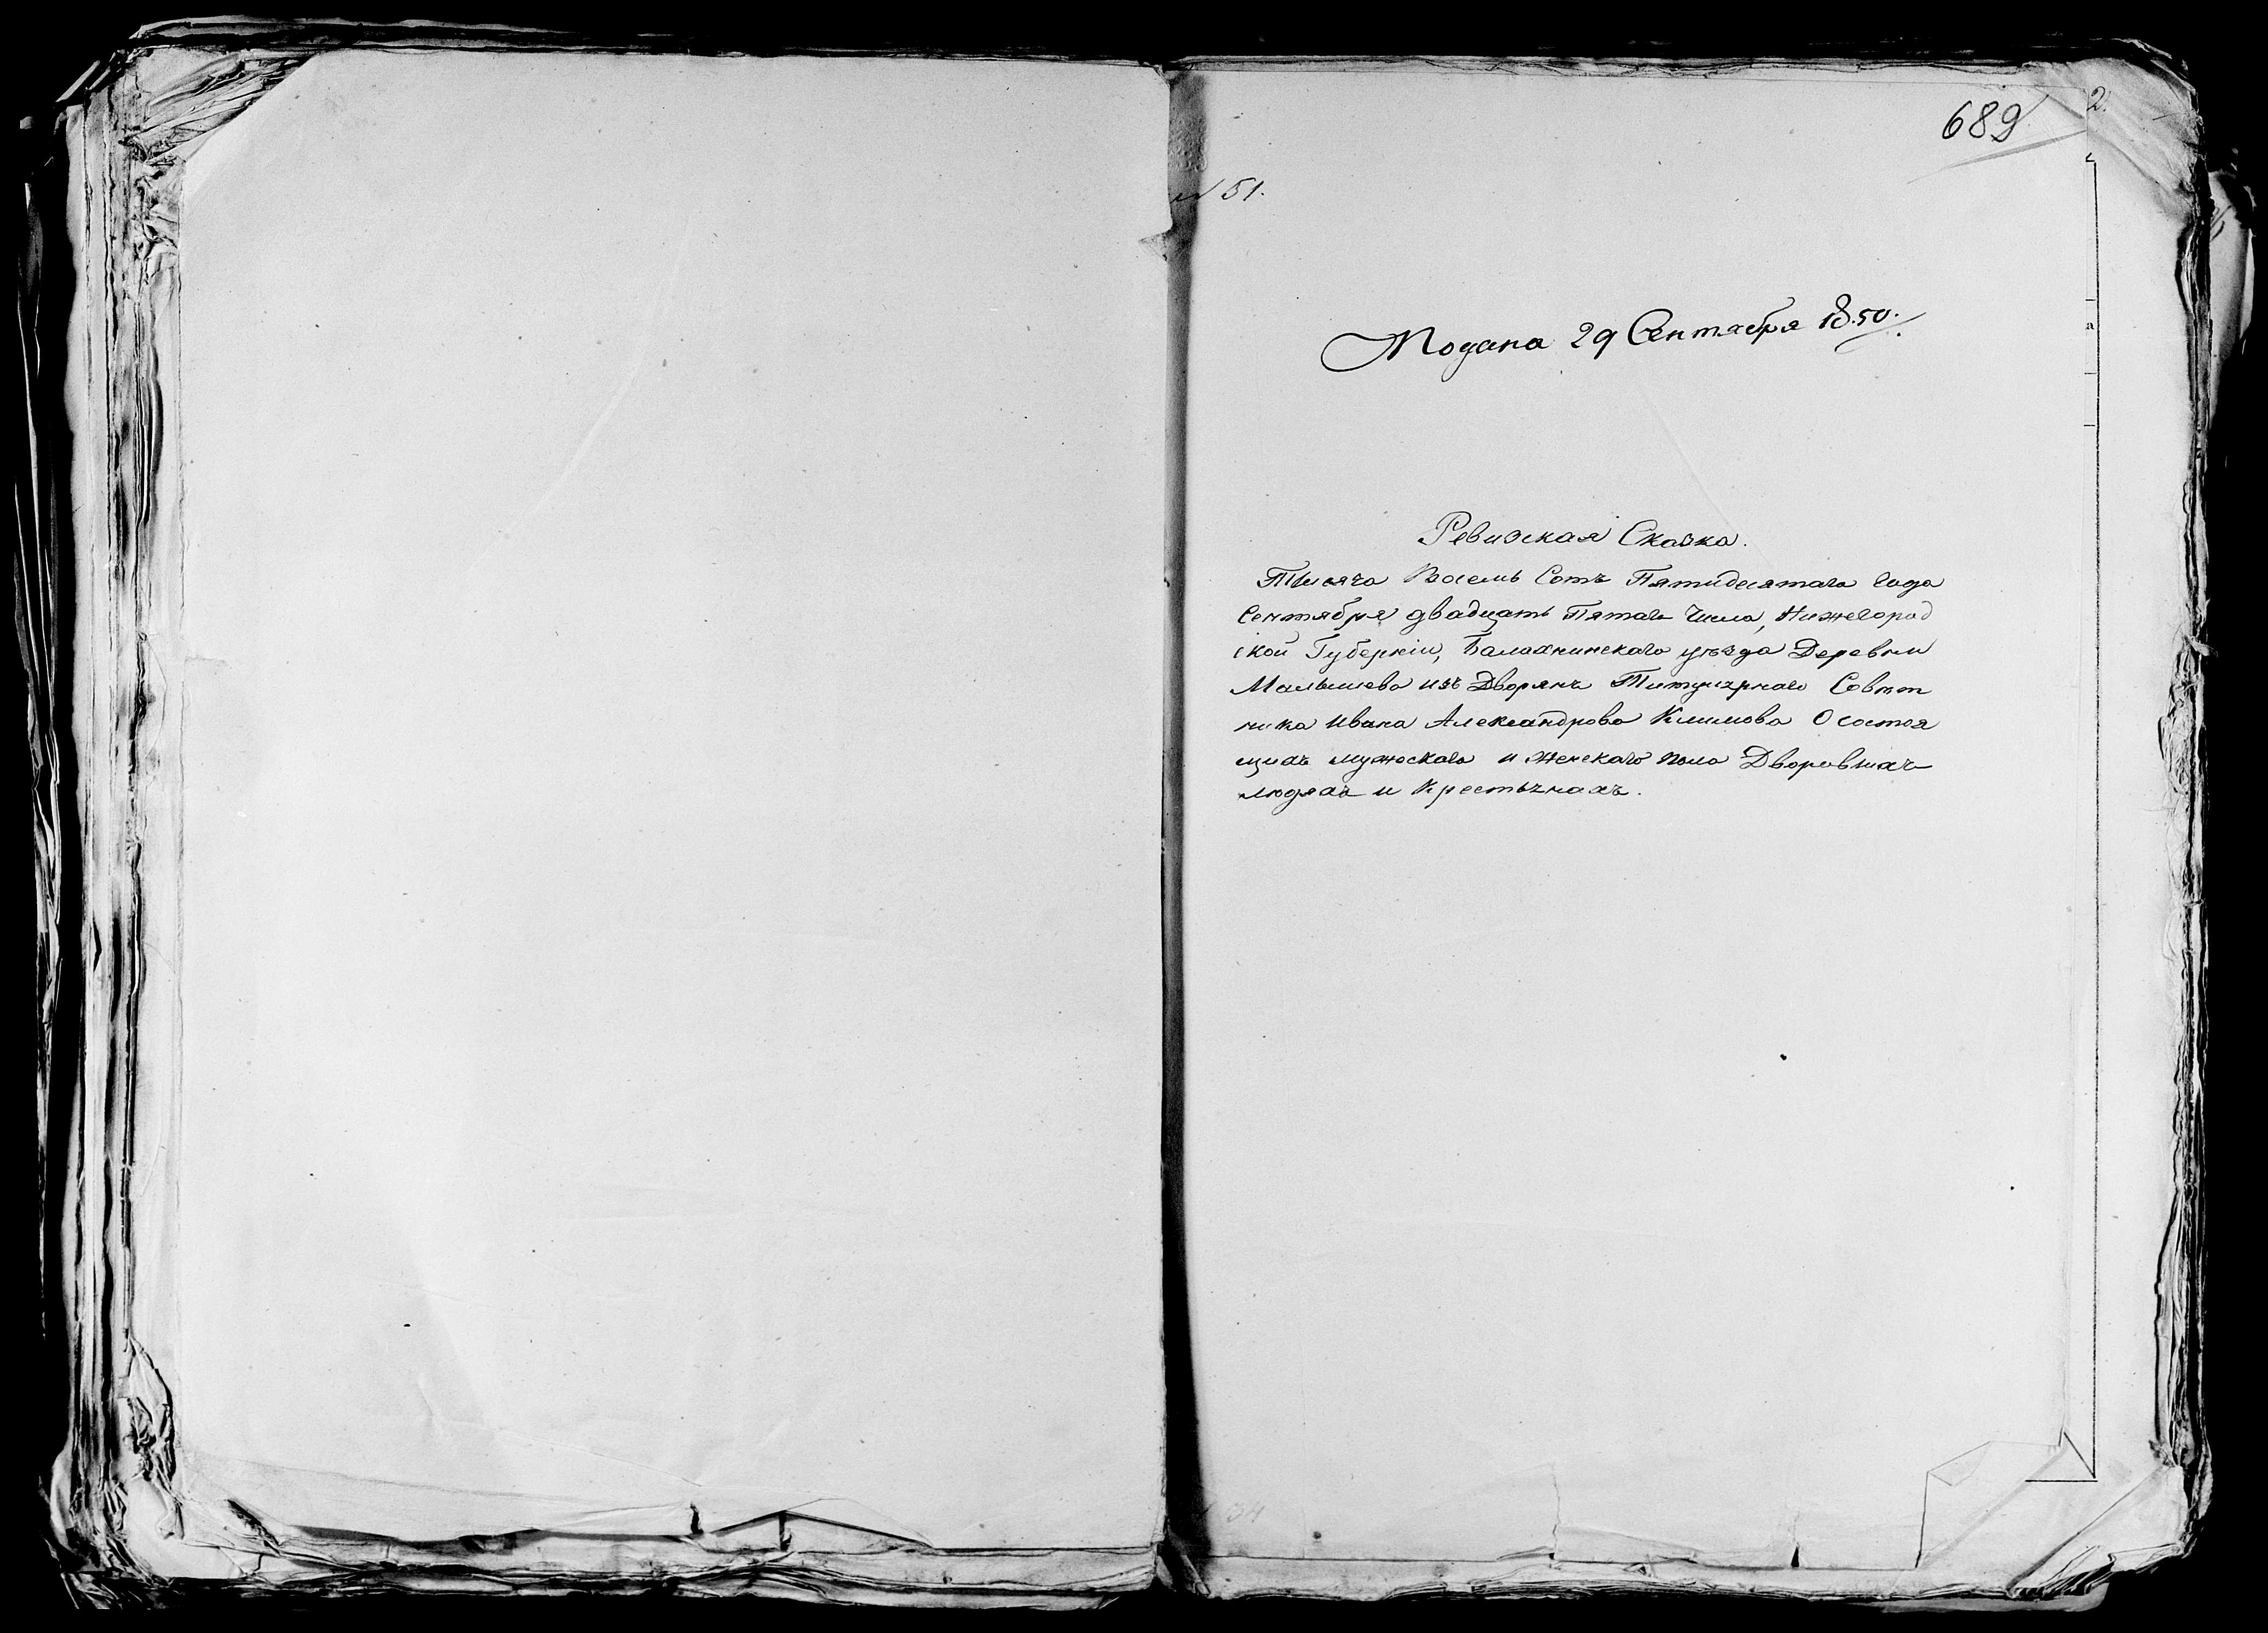 689
2.
N 51.
Подана 29 Сентября 1850.
Ревизская Сказка.
Тысяча Восемь Сотъ Пятидесятаго года
Сентября двадцать Пятаго Числа, Нижегород
ской Губерніи, Балахнинскаго уѣзда Деревни
Малышева изъ Дворянъ Титулярнаго Совѣт
ника Ивана Александрова Климова О состоя
щихъ мужескаго и женскаго пола Дворовыхъ
людяхъ и Крестьянахъ.